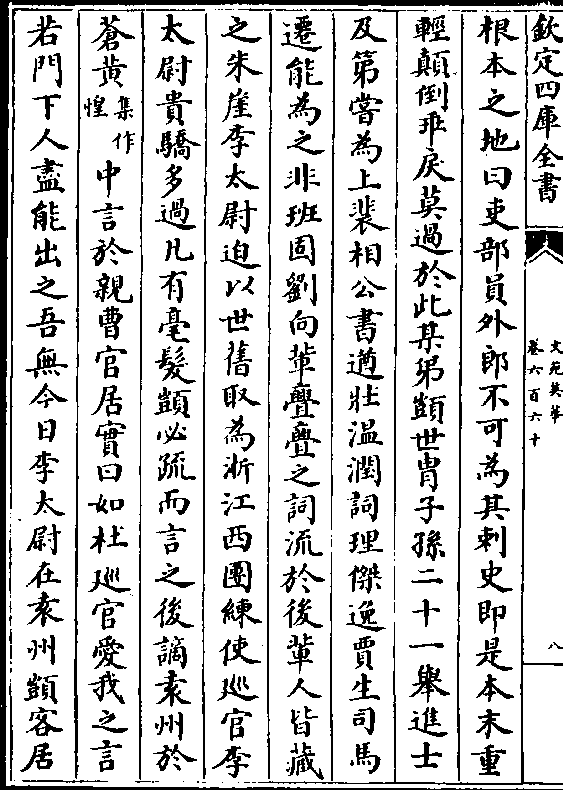 欽定四庫全書
文苑英華
卷六百六十
八
根本之地曰吏部員外郎不可為其刺史即是本末重
輕顛倒乖戾莫過於此某弟顗世胄子孫二十一舉進士
及第嘗為上裴相公書遒壯溫潤詞理傑逸賈生司馬
遷能為之非班固劉向輩亹亹之詞流於後輩人皆藏
之朱崖李太尉迫以世舊取為浙江西團練使巡官李
太尉貴驕多過凡有毫髮顗必疏而言之後謫袁州於
蒼黃集作惶中言於親曹官居實曰如杜巡官愛我之言
若門下人盡能出之吾無今日李太尉在袁州顗客居